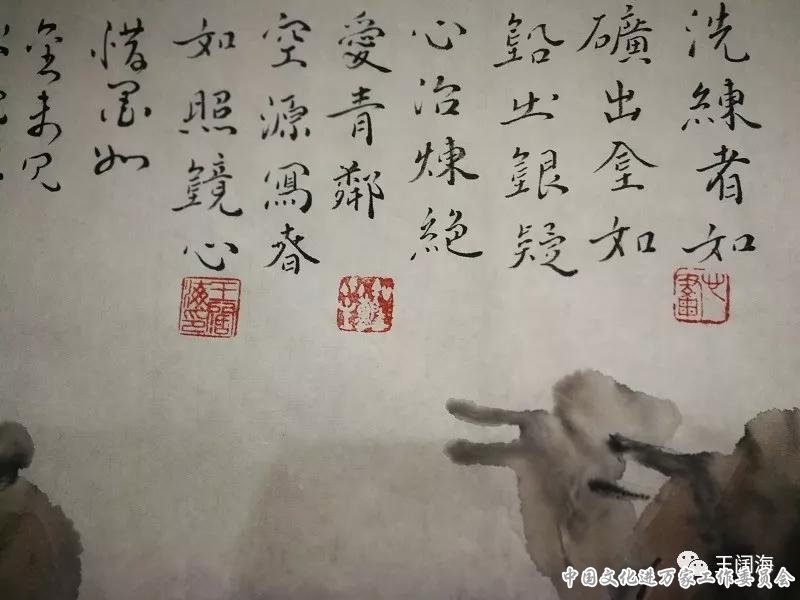 洗練者如
礦出金如
鉛出銀疑
心冶煉絕
愛青鄰
空源寫春
如照鏡心
惜墨如
金未見
王闊海印
王阔海
中国文化进万家工作委员会